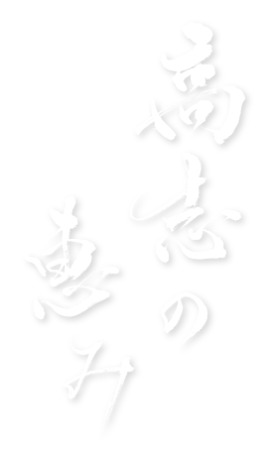 高志の
恵み